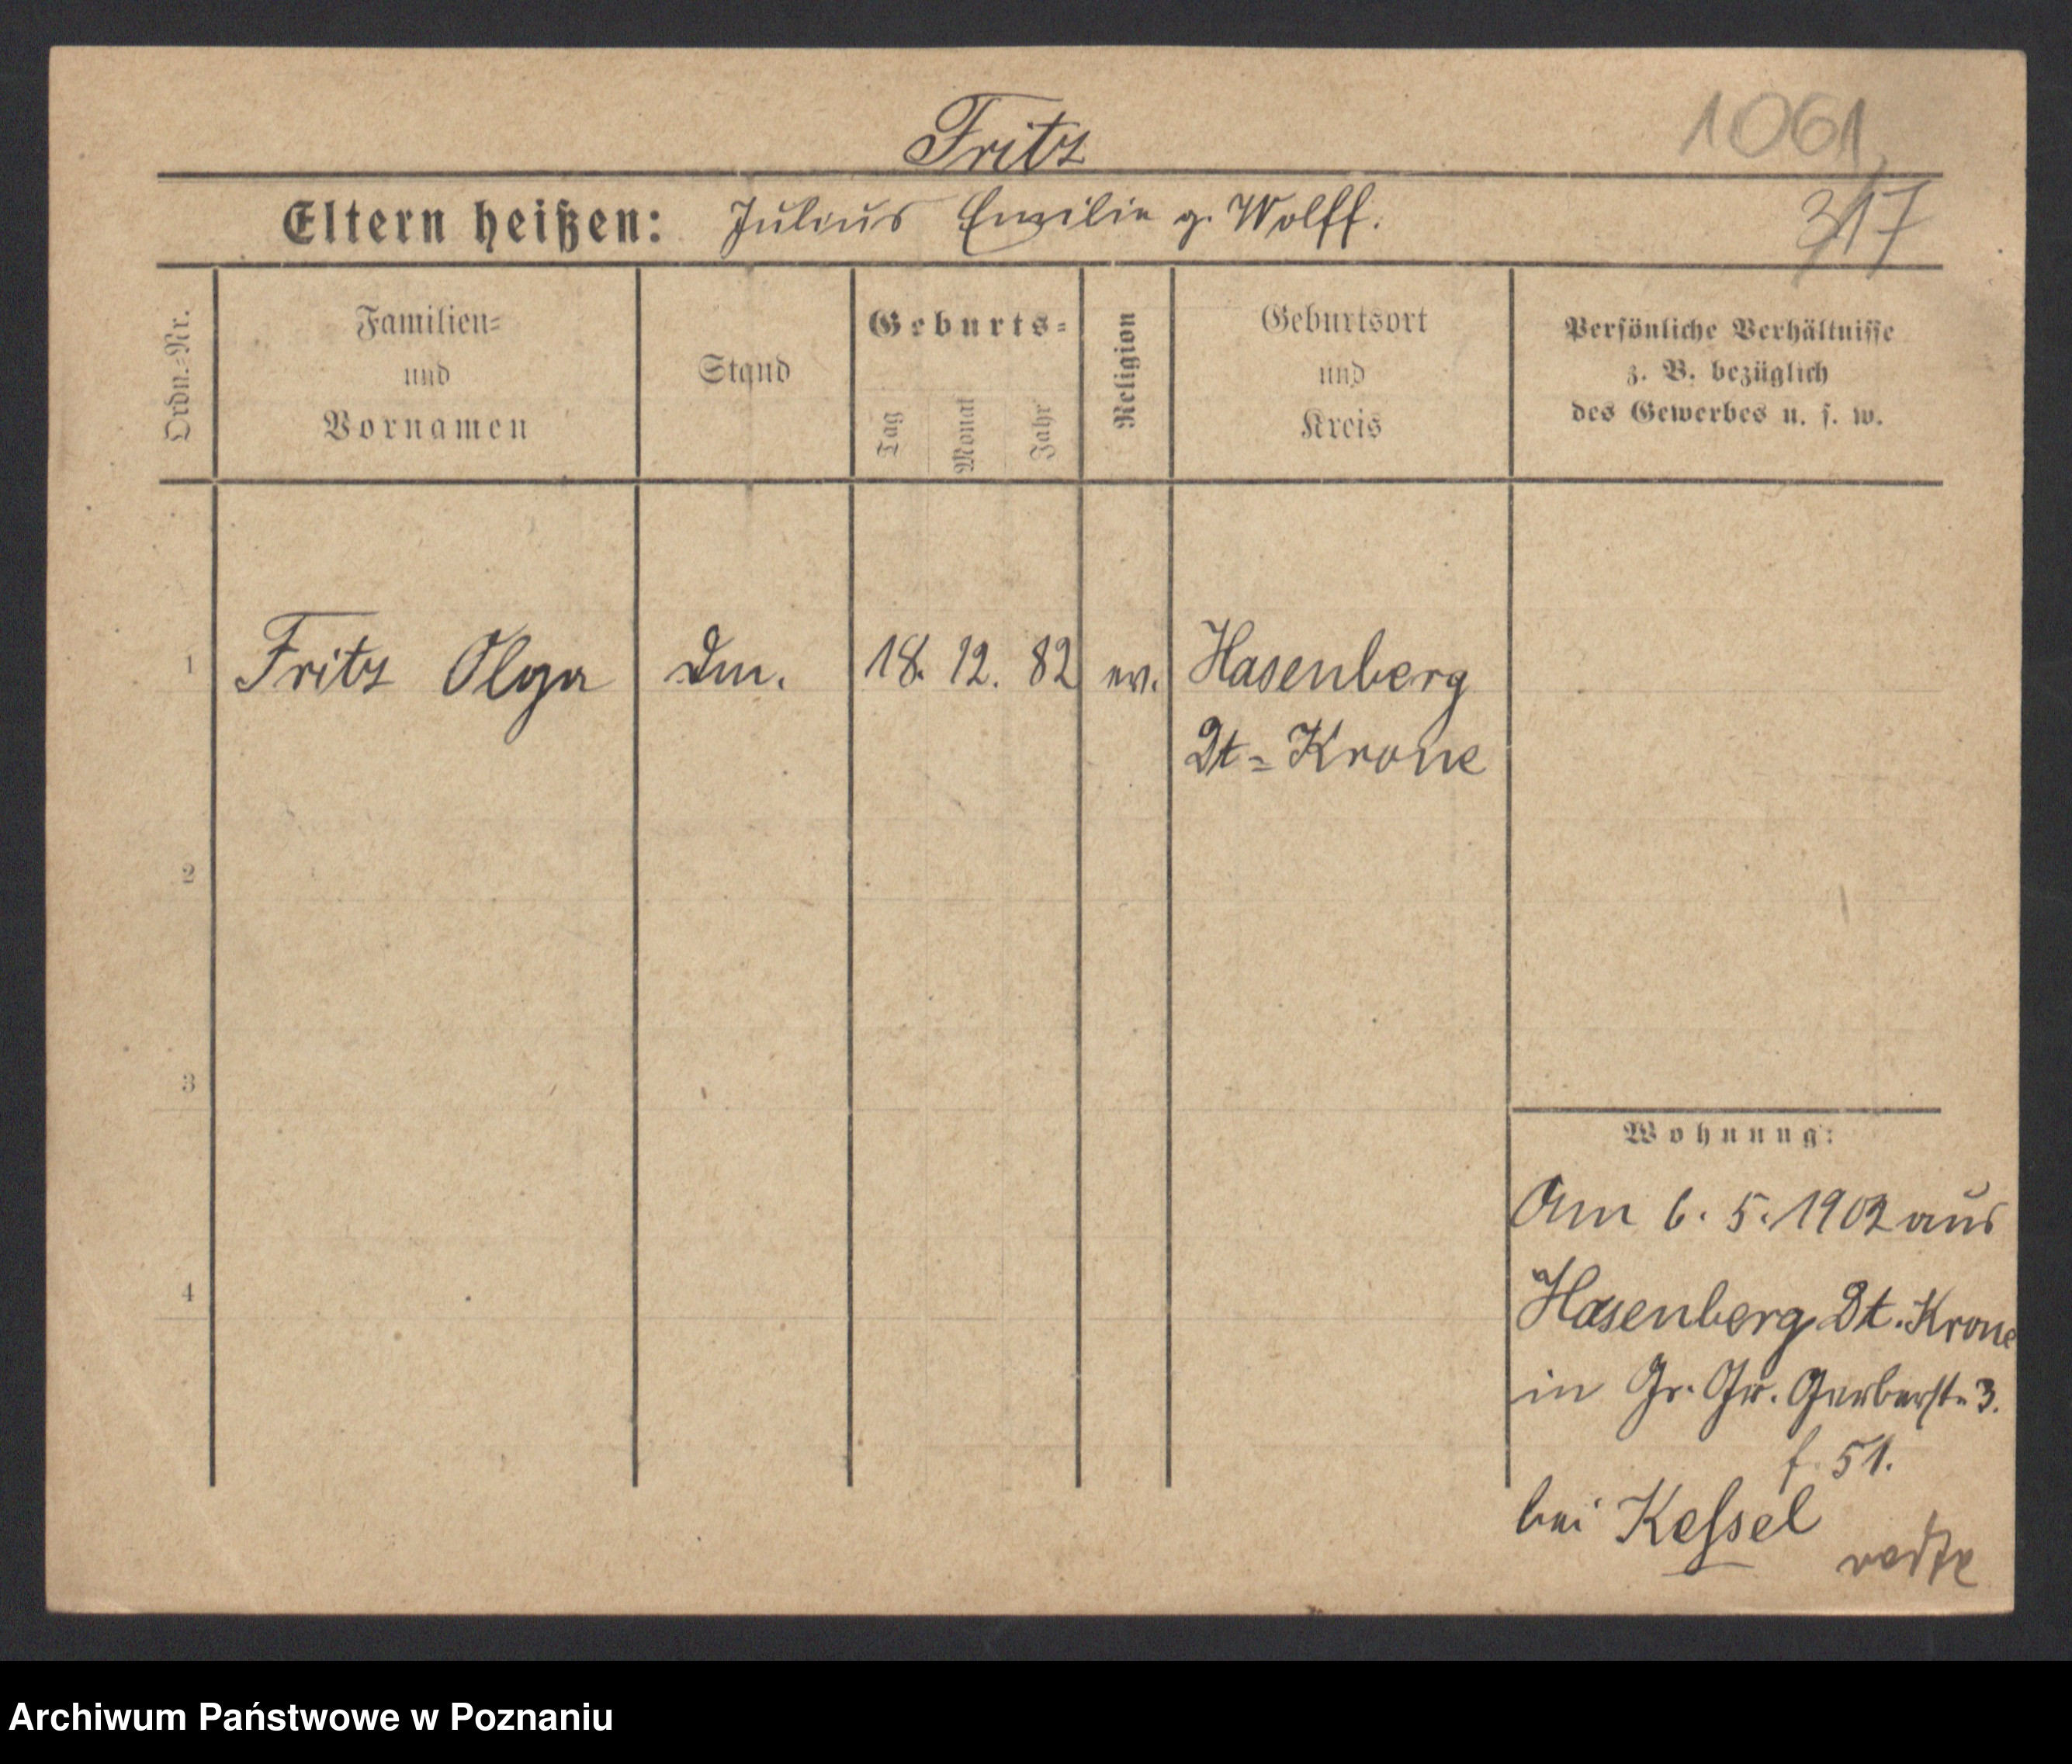 Fritz
1061
317
Eltern heißen: Julius Emilie g. Wolff.
Ordn.=Nr.
Familien=
und
Vornamen
Stand
Geburts=
Tag
Monat
Jahr
Religion
Geburtsort
und
Kreis
Persönliche Verhältnisse
z. B. bezüglich
des Gewerbes u. s. w.
1 Fritz Olga Dm. 18. 12. 82 ev. Hasenberg
Dt= Krone
2
3
4
Wohnung:
Am 6. 5. 1902 aus
Hasenberg Dt. Krone
in Gr. Gerberst. 3.
f. 51.
bei Kessel
Archiwum Państwowe w Poznaniu